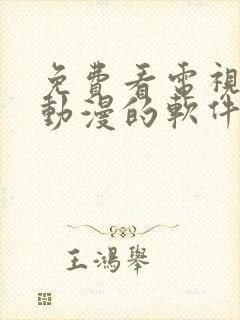 免費看電視
動漫的軟件
王鴻舉